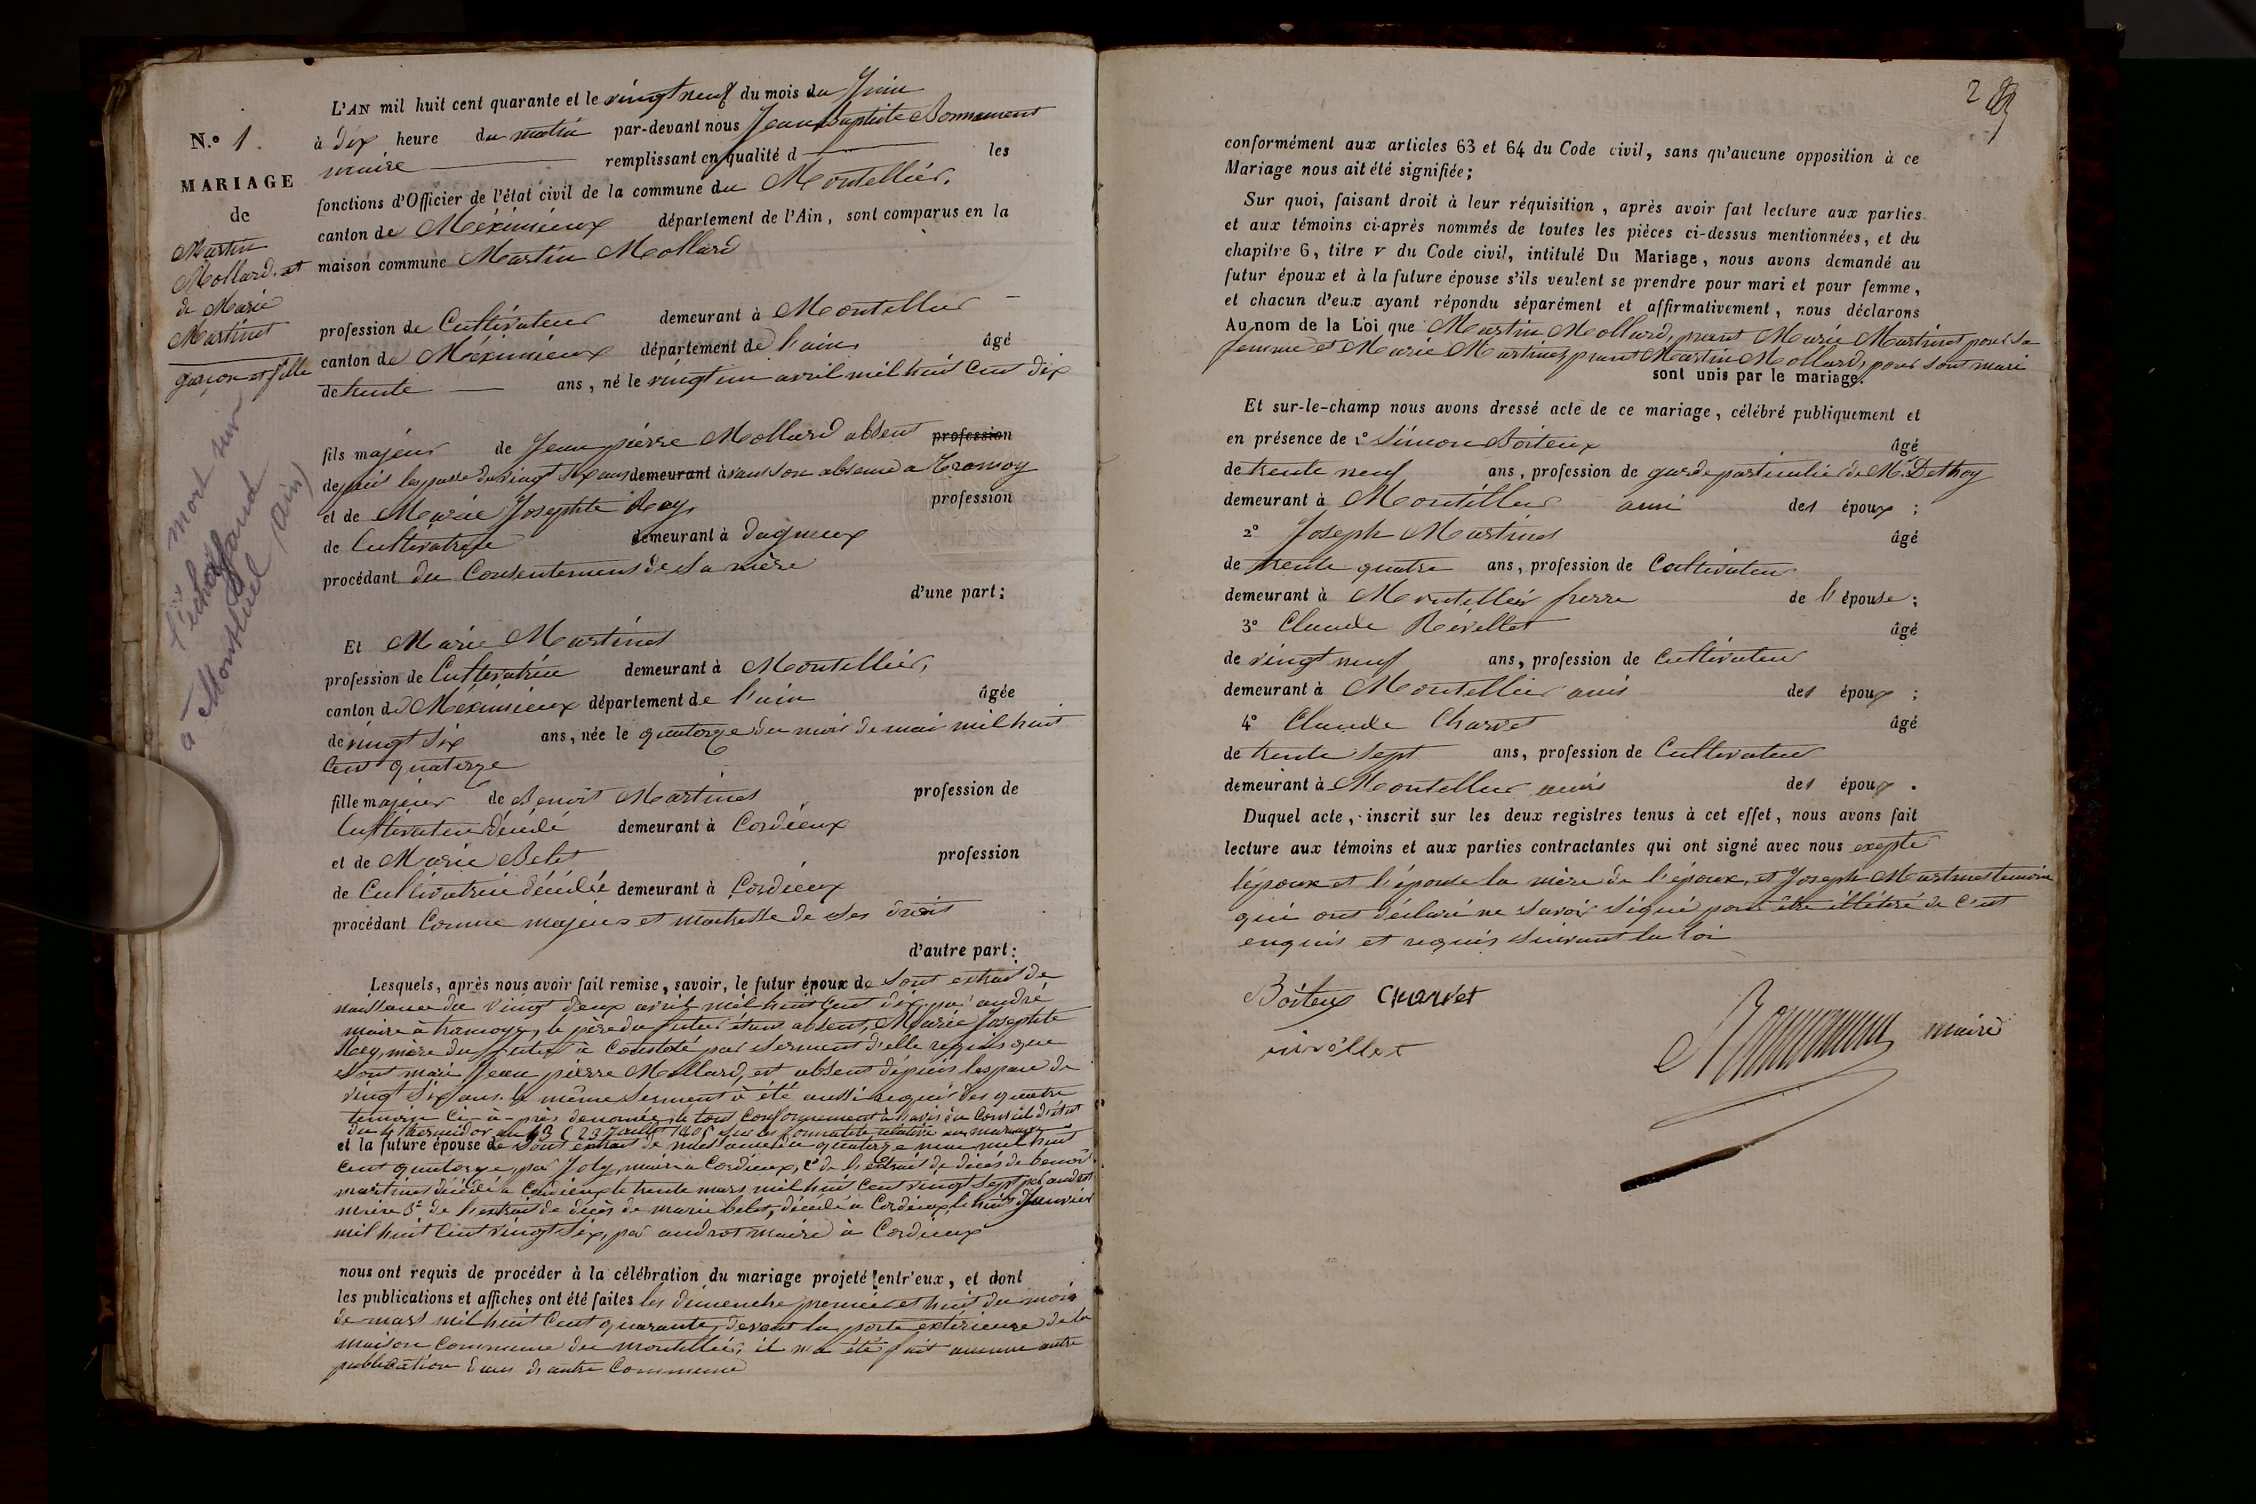 N.º 1.
MARIAGE
de
Martin
Mollard et
de Marie
Martinet
garçon et fille
mort sur
l'échafaud
à Montluel (Ain)
L'AN mil huit cent quarante et le vingt neuf du mois de Juin
à dix heure du matin par-devant nous Jean Baptiste Bonnament
maire remplissant en qualité d les
fonctions d'Officier de l'état civil de la commune du Montellier,
canton de Méximieux département de l'Ain, sont comparus en la
maison commune Martin Mollard
profession de Cultivateur demeurant à Montellier
canton de Méximieux département de l'ain âgé
de trente ans, né le vingt un avril mil huit Cent dix
fils majeur de Jean pierre Mollard absent profession
depuis lespasse de vingt six ans demeurant avant son absence a Tramoy
et de Marie Josephte Rey, profession
de Cultivatrice demeurant à dagneux
procédant du Consentement de sa mère
d'une part;
Et Marie Martinet
profession de Cultivatrice demeurant à Montellier,
canton de Méximieux département de l'ain âgée
de vingt six ans, née le quatorze du mois de mai mil huit
Cent quatorze
fille majeur de Benoit Martinet profession de
Cultivateur décédé demeurant à Cordieux
et de Marie Belet profession
de Cultivatrice décédée demeurant à Cordieux
procédant Comme majeur et maitresse de ses droit
d'autre part:
Lesquels, après nous avoir fait remise, savoir, le futur époux de sont extrait de
naissance du vingt deux avril mil huit cent dix par andré
maire à tramoye, le père du futur étant absent, Marie Josephte
Rey, mère du futur à Constaté par serment d'elle requis que
sont mari Jean pierre Mollard, est absent dépuis lespace de
vingt six ans. le même serment à été aussi requis des quatre
temoin Ci-à-près denomés, le tout Conformement à l'avis du Conseil d'état
du 4 thermidor an 13 (23 Juillet 1805 sur les formalités relative aux mariages
et la future épouse de sont extrait de naissance du quatorze mai mil huit
Cent quatorze, par Joly, maire a Cordieux, 2º de l'extrait de décés de benoit
martinet décédé a Cordieux le trente mars mil huit Cent vingt sept par androt
maire 3º de l'extrait de décés de marie belet, décédé a Cordieux le huit Janvier
mil huit Cent vingt six, par androt maire à Cordieux
nous ont requis de procéder à la célébration du mariage projeté entr'eux, et dont
les publications et affiches ont été faites les dimenche premier et huit du mois
de mars mil huit Cent quarante, devant la porte extérieure de la
maison commune du montellier, il n'a été fait aucune autre
publication dans d'autre Commune
2
conformément aux articles 63 et 64 du Code civil, sans qu'aucune opposition à ce
Mariage nous ait été signifiée;
Sur quoi, faisant droit à leur réquisition, après avoir fait lecture aux parties
et aux témoins ci-après nommés de toutes les pièces ci-dessus mentionnées, et du
chapitre 6, titre v du Code civil, intitulé Du Mariage, nous avons demandé au
futur époux et à la future épouse s'ils veulent se prendre pour mari et pour femme,
et chacun d'eux ayant répondu séparément et affirmativement, nous déclarons
Au nom de la Loi que Martin Mollard, prent Marie Martinet pour sa
femme et Marie Martinet prent Martin Mollard, pour sont mari
sont unis par le mariage.
Et sur-le-champ nous avons dressé acte de ce mariage, célébré publiquement et
en présence de 1º Simon Boiteux âgé
de trente neuf ans, profession de garde particulié de Mr. Dethoy
demeurant à Montellier ami des époux;
2º Joseph Martinet âgé
de trente quatre ans, profession de Cultivateur
demeurant à Montellier frerre de l'épouse;
3º Claude Révellet âgé
de vingt neuf ans, profession de Cultivateur
demeurant à Montellier amis des époux;
4º Claude Charvet âgé
de trente sept ans, profession de Cultivateur
demeurant à Montellier amis des époux.
Duquel acte, inscrit sur les deux registres tenus à cet effet, nous avons fait
lecture aux témoins et aux parties contractantes qui ont signé avec nous exepté
l'époux et l'épouse la mère de l'époux, et Joseph Martinet temoin
qui ont déclaré ne savoir signé pour être illétéré de Cent
enquis et requis suivant la loi
Boiteux Charvet
Bonnament maire